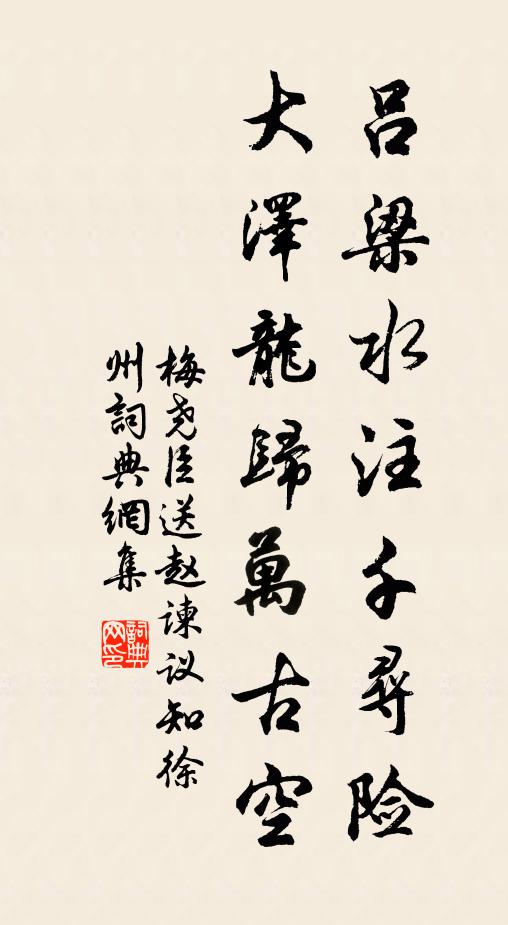 吕梁水注千尋险
大澤龍歸萬古空
梅尧臣送赵谏议知徐
州詞典網集
詞典
网印